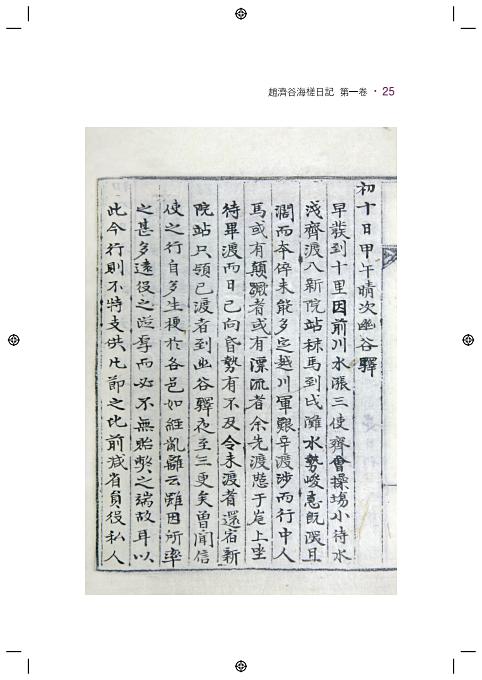 趙濟谷海槎日記 第一卷 · 25
初十日甲午晴次幽谷驛
早發到十里因前川水漲三使齊會操塲小待水
淺齊渡入新院站秣馬到戌灘水勢峻急旣深且
濶而卒倅未能多定越川軍艱辛渡涉而行中人
馬或有顚蹶者或有漂流者余先渡憇于崖上坐
待畢渡而日已向昏勢有不及令未渡者還宿新
院站只領已渡者到幽谷驛夜至三更矣曾聞信
使之行自多生梗於各邑如經亂離云雖因所率
之甚多遠役之 而必不無貽弊之端故耳以
此今行則不特支供凡節之比前减省員役私人